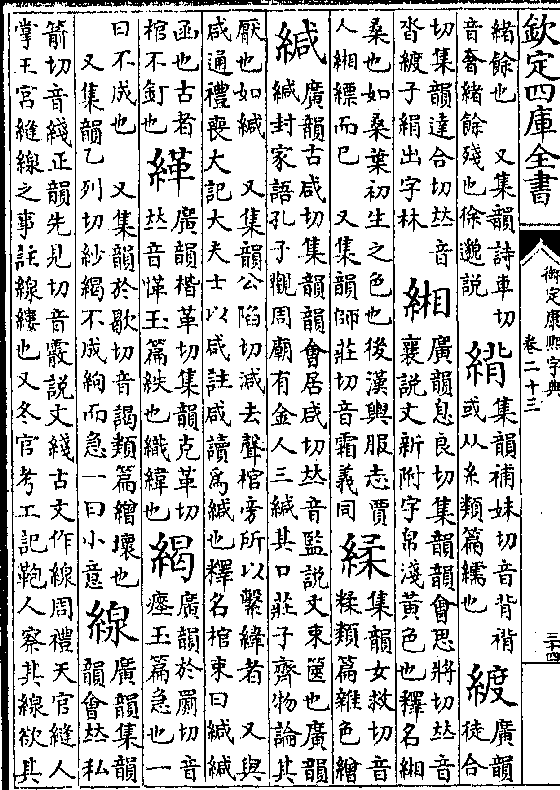 欽定四庫全書
御定康熙字典
卷二十三
三十四
緒餘也　又集韻詩車切
音奢緒餘殘也徐邈說
集韻補妹切音背褙
或从糸類篇繻也
廣韻徒合
切集韻達合切𠀤音
沓子絹出字林
緗
廣韻息良切集韻韻會思將切𠀤音
襄說文新附字帛淺黃色也釋名緗
桑也如桑葉初生之色也後漢輿服志賈
人緗縹而已　又集韻師莊切音霜義同
䋴
集韻女救切音
糅類篇雜色繒
緘
廣韻古咸切集韻韻會居咸切𠀤音監說文束篋也廣韻
緘封家語孔子觀周廟有金人三緘其口莊子齊物論其
厭也如緘　又集韻公陷切減去聲棺旁所以繫緯者　又與
咸通禮喪大記大夫士以咸註咸讀爲緘也釋名棺束曰緘緘
函也古者
棺不釘也
緙
廣韻楷革切集韻克革切
𠀤音愅玉篇紩也織緯也
䋵
廣韻於罽切音
瘞玉篇急也一
曰不成也　又集韻於歇切音謁類篇繒壞也
又集韻乙列切紗䋵不成絇而急一曰小意
線
廣韻集韻
韻會𠀤私
箭切音綫正韻先見切音霰說文綫古文作線周禮天官縫人
掌王宮縫線之事註線縷也又冬官考工記鞄人察其線欲其